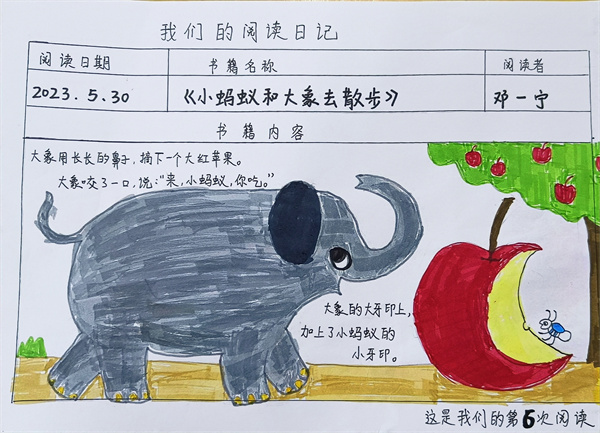 我们的阅读日记
阅读日期 书籍名称 阅读者
2023.5.30 《小蚂蚁和大象去散步》 邓一宁
书籍内容
大象用长长的鼻子,摘下一个大红苹果。
大象咬了一口,说:“来,小蚂蚁,你吃。”
大象的大牙印上,
加上了小蚂蚁的
小牙印。
这是我们的第6次阅读